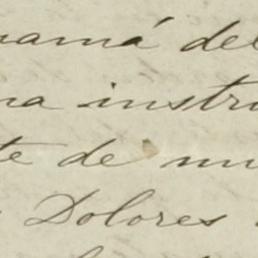 namá del
na instru
te de mu
Dolores